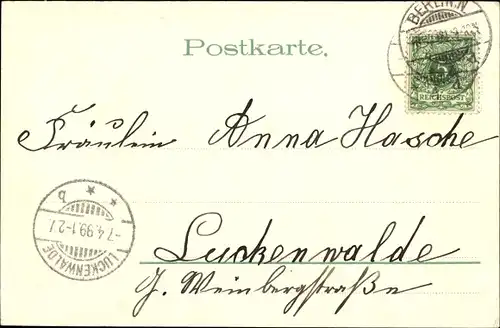 BERLIN.N.
Postkarte.
5
REICHSPOST
Fräulein Anna Hasche
-7.4.99.1-2N.
LUCKENWALDE
* b *
Luckenwalde
J. Weinbergstraße